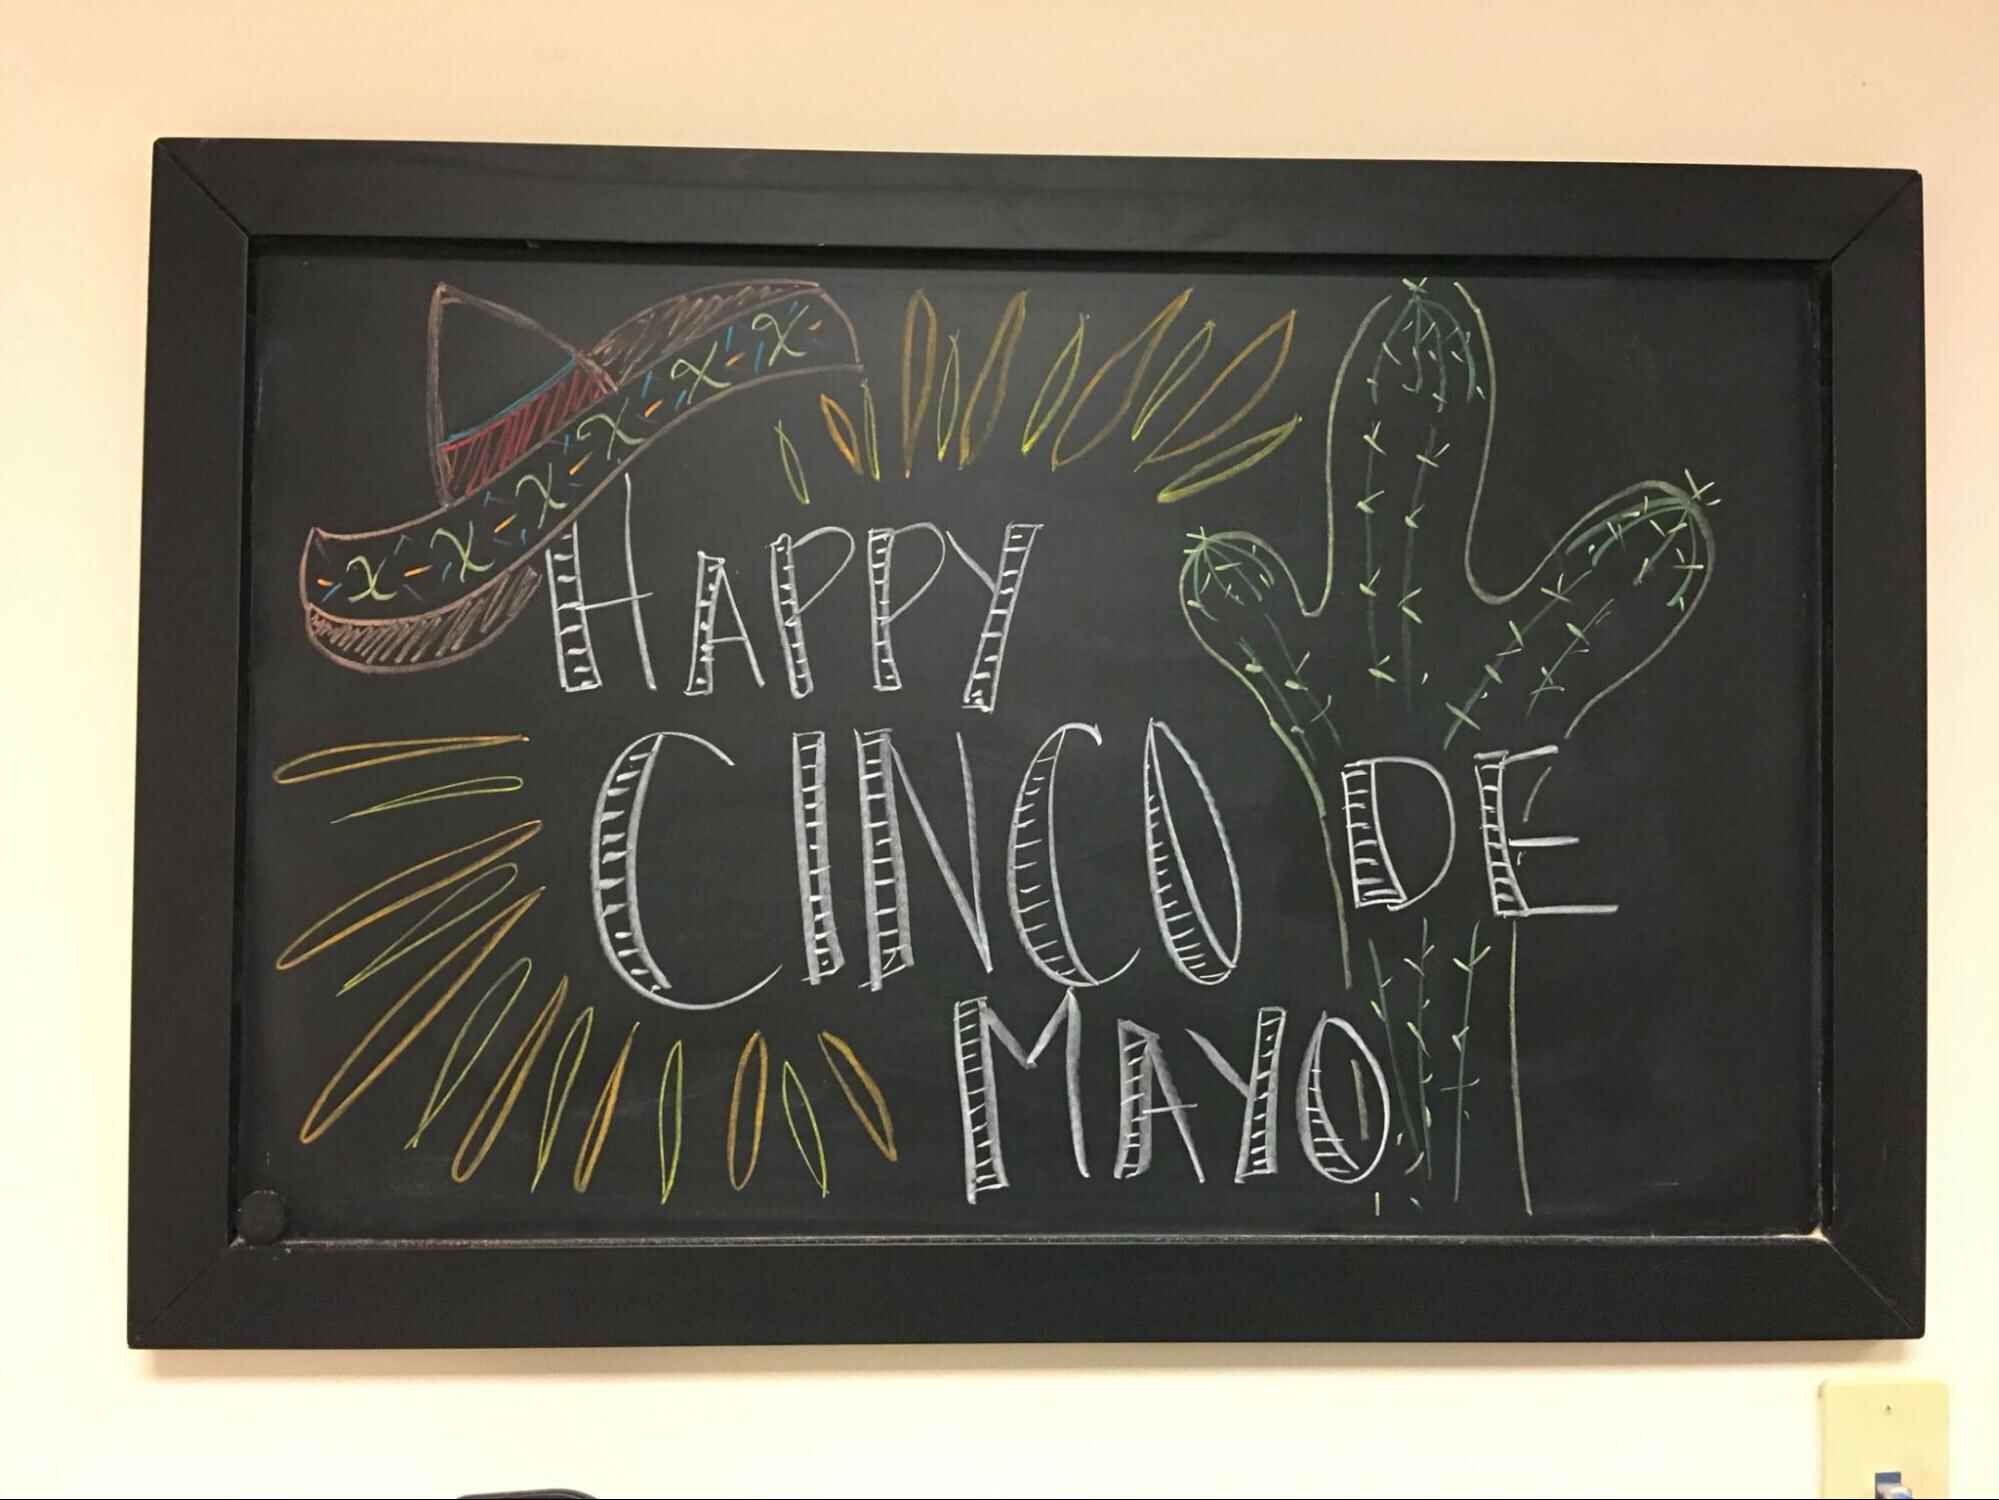 HAPPY
CINCO DE
MAYO